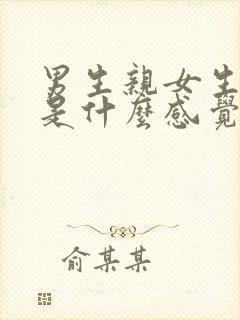 男生親女生
是什麼感覺
俞某某